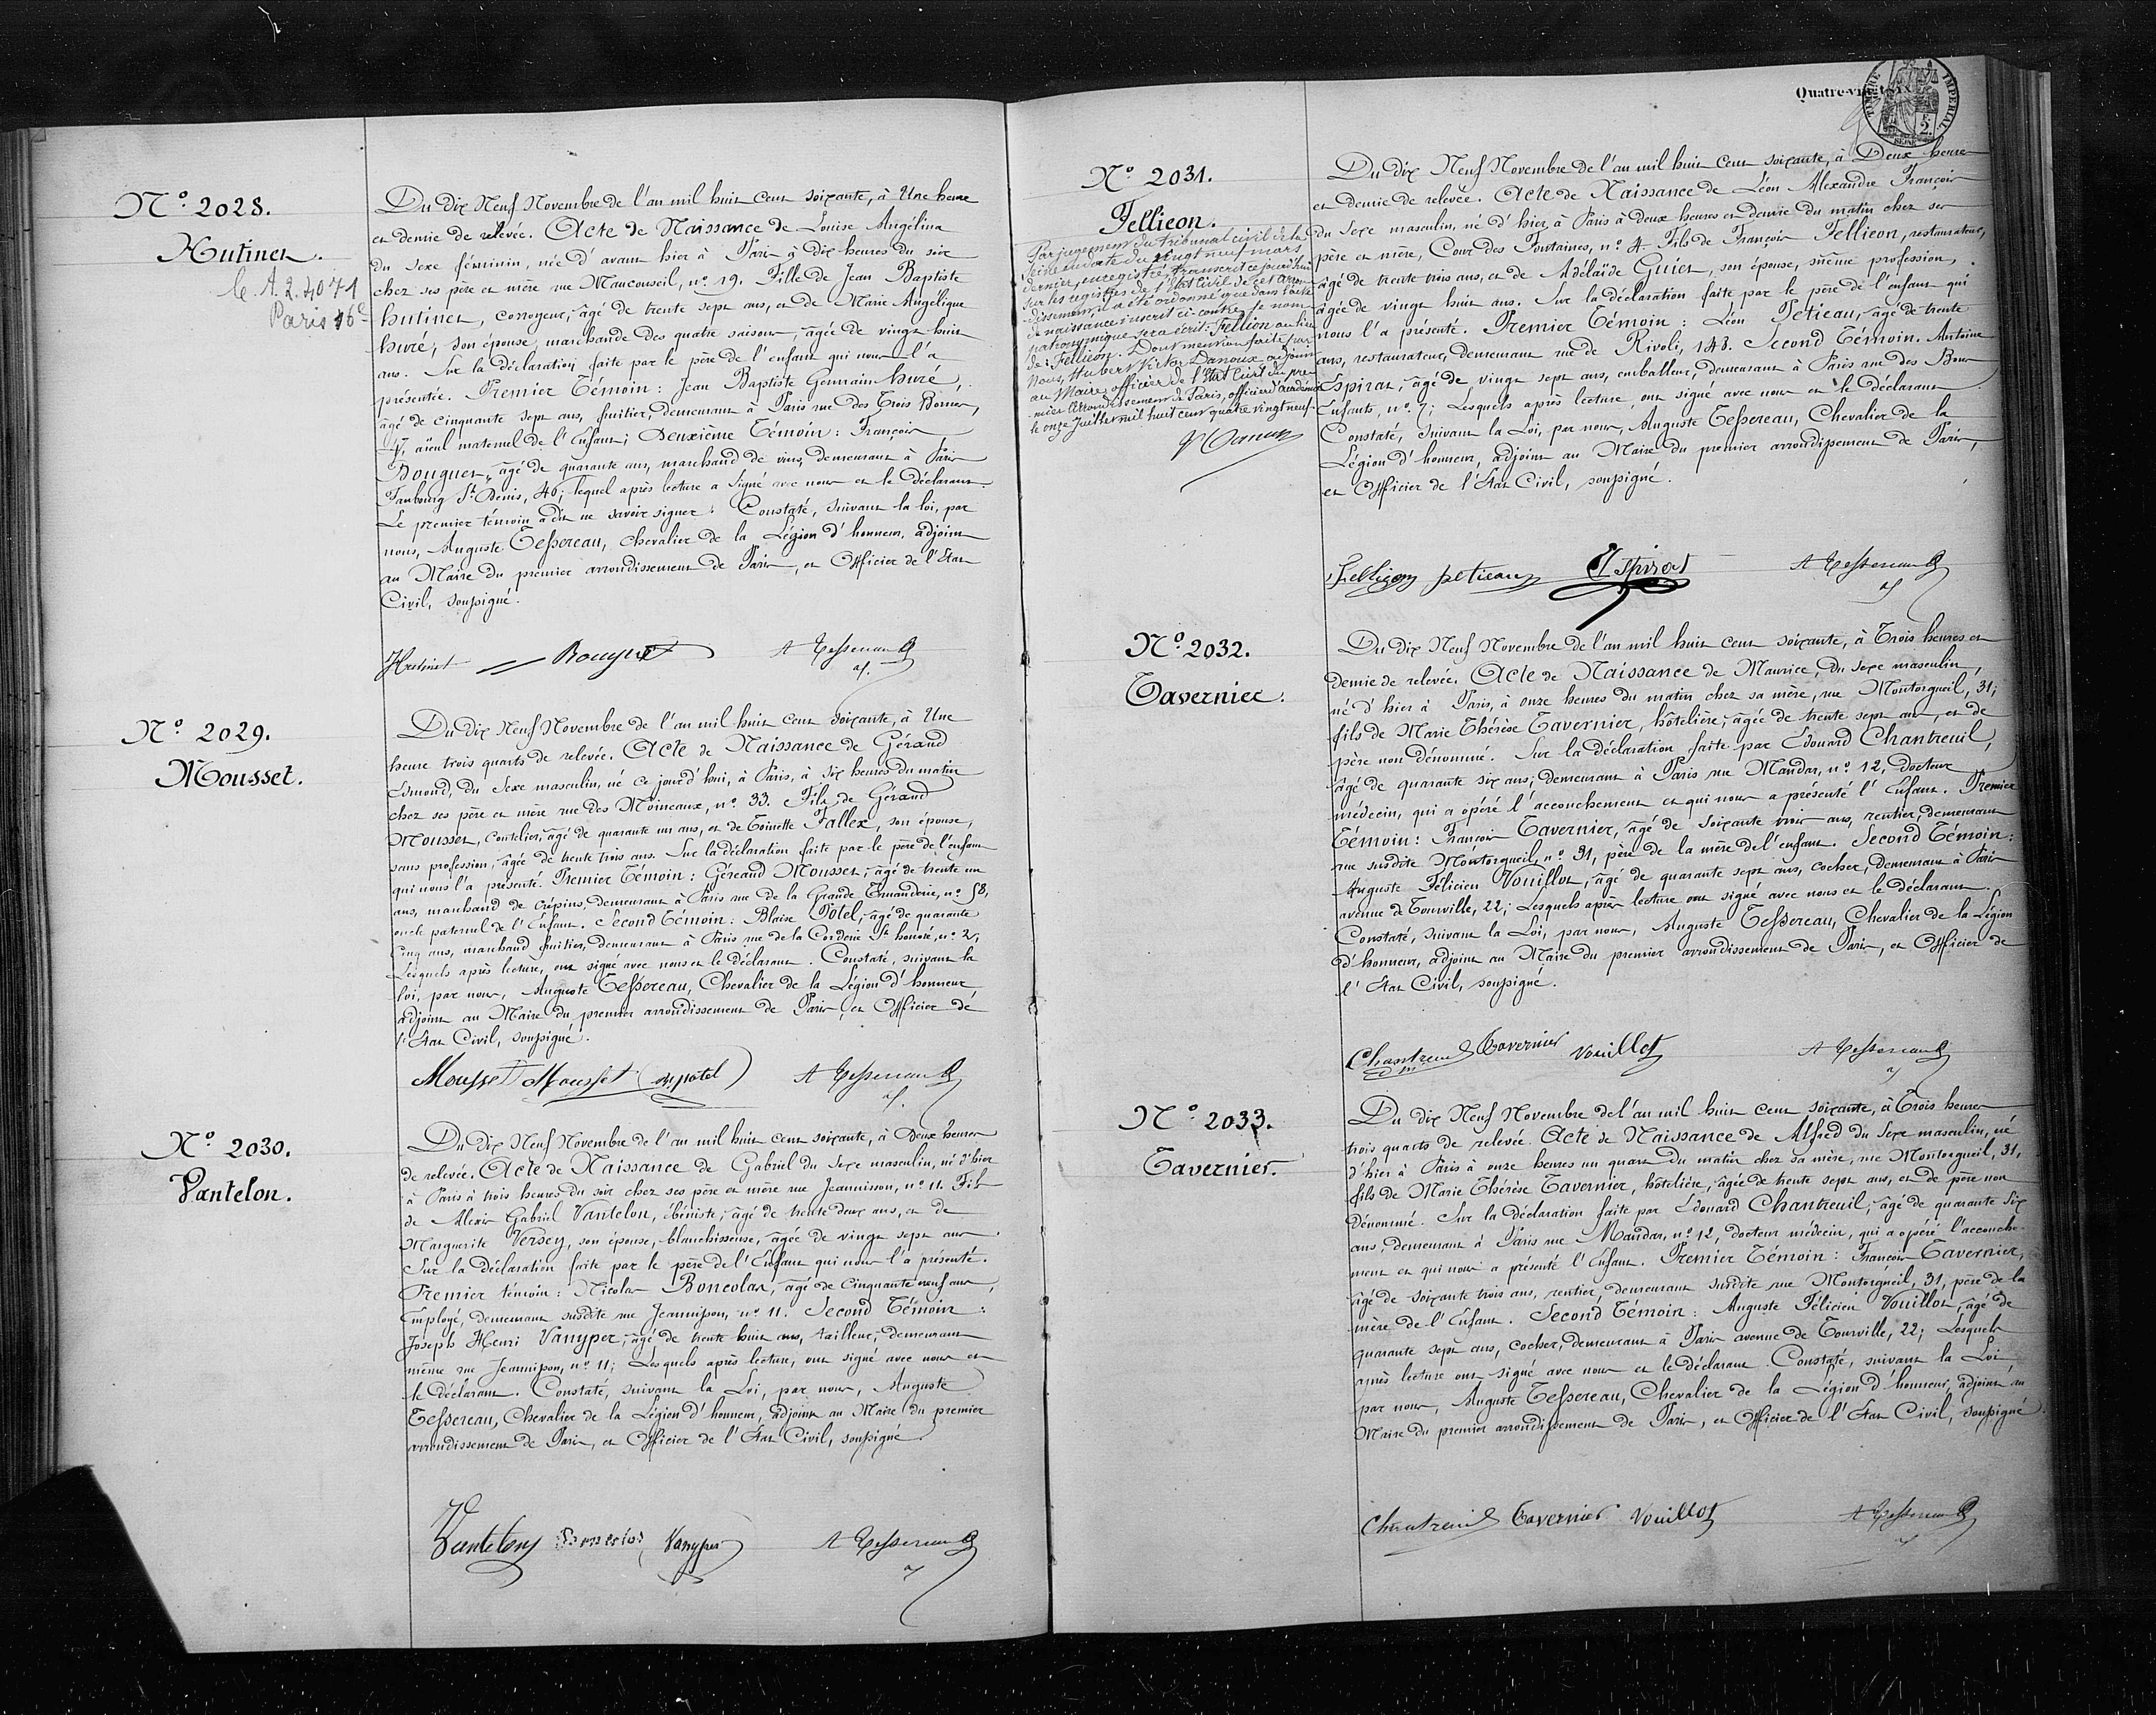 N.° 2028.
Hutinet.
C. A. 2.4071
Paris 16e
Du dix Neuf Novembre de l'an mil huit cent soixante, à Une heure
et demie de relevée. Acte de Naissance de Louise Angélina
du sexe féminin, née d'avant hier à Paris à dix heures du soir
chez ses père et mère rue Mauconseil, n.° 19. Fille de Jean Baptiste
hutinet, corroyeur, âgé de trente sept ans, et de Marie Angélique
huré, son épouse, marchande des quatre saisons, âgée de vingt huit
ans. Sur la déclaration faite par le père de l'enfant qui nous l'a
présentée. Premier Témoin: Jean Baptiste Germain huré,
âgé de cinquante sept ans, fruitier, demeurant à Paris rue des Trois Bornes,
47, aïeul maternel de l'Enfant; Deuxième Témoin: François
Bouguet, âgé de quarante ans, marchand de vins, demeurant à Paris
Faubourg St Denis, 46; lequel après lecture a signé avec nous et le déclarant.
Le premier témoin a dit ne savoir signer. Constaté, suivant la loi, par
nous, Auguste Tessereau, chevalier de la Légion d'honneur, adjoint
au Maire du premier arrondissement de Paris, et Officier de l'Etat
Civil, soussigné.
Hutinet Bouguet A Tessereau
N.° 2029.
Mousset.
Du dix Neuf Novembre de l'an mil huit cent soixante, à Une
heure trois quarts de relevée. Acte de Naissance de Gérand
Edmond, du Sexe masculin, né ce jourd'hui, à Paris, à six heures du matin
chez ses père et mère rue des Moineaux, n.° 33. Fils de Gérand
Mousset, coutelier, âgé de quarante un ans, et de Toinette Fallex, son épouse,
sans profession, âgée de trente trois ans. Sur la déclaration faite par le père de l'enfant
qui nous l'a présenté. Premier Témoin: Géreaud Mousset, âgé de trente un
ans, marchand de crépins, demeurant à Paris rue de la Grande Truanderie, n.° 58,
oncle paternel de l'Enfant. Second Témoin: Blaise Potel, âgé de quarante
Cinq ans, marchand fruitier, demeurant à Paris rue de la Corderie St honoré, n.° 2;
Lesquels après lecture, ont signé avec nous et le déclarant. Constaté, suivant la
loi, par nous, Auguste Tessereau, Chevalier de la Légion d'honneur,
adjoint au Maire du premier arrondissement de Paris, et Officier de
l'Etat Civil, soussigné.
Mousset Mousset potel A Tessereau
N.° 2030.
Vantelon.
Du dix Neuf Novembre de l'an mil huit cent soixante, à Deux heures
de relevée. Acte de Naissance de Gabriel du Sexe masculin, né d'hier
à Paris à trois heures du soir chez ses père et mère rue Jeannisson, n.° 11. Fils
de Alexis Gabriel Vantelon, ébéniste, âgé de trente deux ans, et de
Marguerite Versey, son épouse, blanchisseuse, âgée de vingt sept ans.
Sur la déclaration faite par le père de l'Enfant qui nous l'a présenté.
Premier témoin: Nicolas Boncolas, âgé de Cinquante neuf ans,
Employé, demeurant susdite rue Jeannisson, n.° 11. Second Témoin:
Joseph Henri Vanyper, âgé de trente huit ans, tailleur, demeurant
même rue Jeannisson, n.° 11; Lesquels après lecture, ont signé avec nous et
le déclarant. Constaté, suivant la Loi, par nous, Auguste
Tessereau, Chevalier de la Légion d'honneur, adjoint au Maire du premier
arrondissement de Paris, et Officier de l'Etat Civil, soussigné.
Vantelon Boncolas Vanyper A Tessereau
Quatre-vingt-six
TIMBRE IMPERIAL
2.
SEINE
N.° 2031.
Fellieon.
Par jugement du tribunal civil de la
Seine en date du vingt neuf mars
dernier, enregistré, transcrit ce jourd'hui
sur les registres de l'Etat Civil de cet arron-
dissement, il a été ordonné que dans l'acte
de naissance inscrit ci-contre, le nom
patronymique sera écrit: Fellion au lieu
de: Fellieon. Dont mention faite par
Nous, Hubert Victor Danoux adjoint
au Maire, officier de l'Etat Civil du pre-
mier Arrondissement de Paris, officier d'académie
le onze Juillet mil huit cent quatre vingt neuf.
Du dix Neuf Novembre de l'an mil huit cent soixante, à Deux heures
et demie de relevée. Acte de Naissance de Léon Alexandre François
du Sexe masculin, né d'hier, à Paris à deux heures et demie du matin chez ses
père et mère, Cour des Fontaines, n.° 4. Fils de François Fellieon, restaurateur,
âgé de trente trois ans, et de Adélaïde Guier, son épouse, même profession,
âgée de vingt huit ans. Sur la déclaration faite par le père de l'enfant qui
nous l'a présenté. Premier Témoin: Léon Petieau, âgé de trente
ans, restaurateur, demeurant rue de Rivoli, 148. Second Témoin. Antoine
Espirat, âgé de vingt sept ans, emballeur, demeurant à Paris rue des Bons
Enfants, n.° 7; Lesquels après lecture, ont signé avec nous et le déclarant.
Constaté, suivant la Loi, par nous, Auguste Tessereau, Chevalier de la
Légion d'honneur, adjoint au Maire du premier arrondissement de Paris,
et Officier de l'Etat Civil, soussigné.
Fellieon petieau Espirat A Tessereau
N.° 2032.
Tavernier.
Du dix Neuf Novembre de l'an mil huit cent soixante, à Trois heures et
demie de relevée. Acte de Naissance de Maurice, du Sexe masculin,
né d'hier à Paris, à onze heures du matin chez sa mère, rue Montorgueil, 31;
fils de Marie Thérèse Tavernier, hôtelière, âgée de trente sept ans, et de
père non dénommé. Sur la déclaration faite par Edouard Chantreuil,
âgé de quarante six ans, demeurant à Paris rue Mandar, n.° 12, docteur
médecin, qui a opéré l'accouchement et qui nous a présenté l'Enfant. Premier
Témoin: François Tavernier, âgé de soixante trois ans, rentier, demeurant
rue susdite Montorgueil, n.° 31, père de la mère de l'enfant. Second Témoin:
Auguste Félicien Vouillot, âgé de quarante sept ans, cocher, demeurant à Paris
avenue de Tourville, 22; Lesquels après lecture ont signé avec nous et le déclarant.
Constaté, suivant la Loi, par nous, Auguste Tessereau, Chevalier de la Légion
d'honneur, adjoint au Maire du premier arrondissement de Paris, et Officier de
l'Etat Civil, soussigné.
Chantreuil Tavernier Vouillot A Tessereau
N.° 2033.
Tavernier.
Du dix Neuf Novembre de l'an mil huit cent soixante, à Trois heures
trois quarts de relevée. Acte de Naissance de Alfred du Sexe masculin, né
d'hier à Paris à onze heures un quart du matin chez sa mère, rue Montorgueil, 31,
fils de Marie Thérèse Tavernier, hôtelière, âgée de trente sept ans, et de père non
dénommé. Sur la déclaration faite par Edouard Chantreuil, âgé de quarante six
ans, demeurant à Paris rue Mandar, n.° 12, docteur médecin, qui a opéré l'accouche-
ment et qui nous a présenté l'Enfant. Premier Témoin: François Tavernier,
âgé de soixante trois ans, rentier, demeurant susdite rue Montorgueil, 31, père de la
mère de l'Enfant. Second Témoin: Auguste Félicien Vouillot, âgé de
quarante sept ans, cocher, demeurant à Paris avenue de Tourville, 22; Lesquels
après lecture ont signé avec nous et le déclarant. Constaté, suivant la Loi,
par nous, Auguste Tessereau, Chevalier de la Légion d'honneur, adjoint au
Maire du premier arrondissement de Paris, et Officier de l'Etat Civil, soussigné.
Chantreuil Tavernier Vouillot A Tessereau